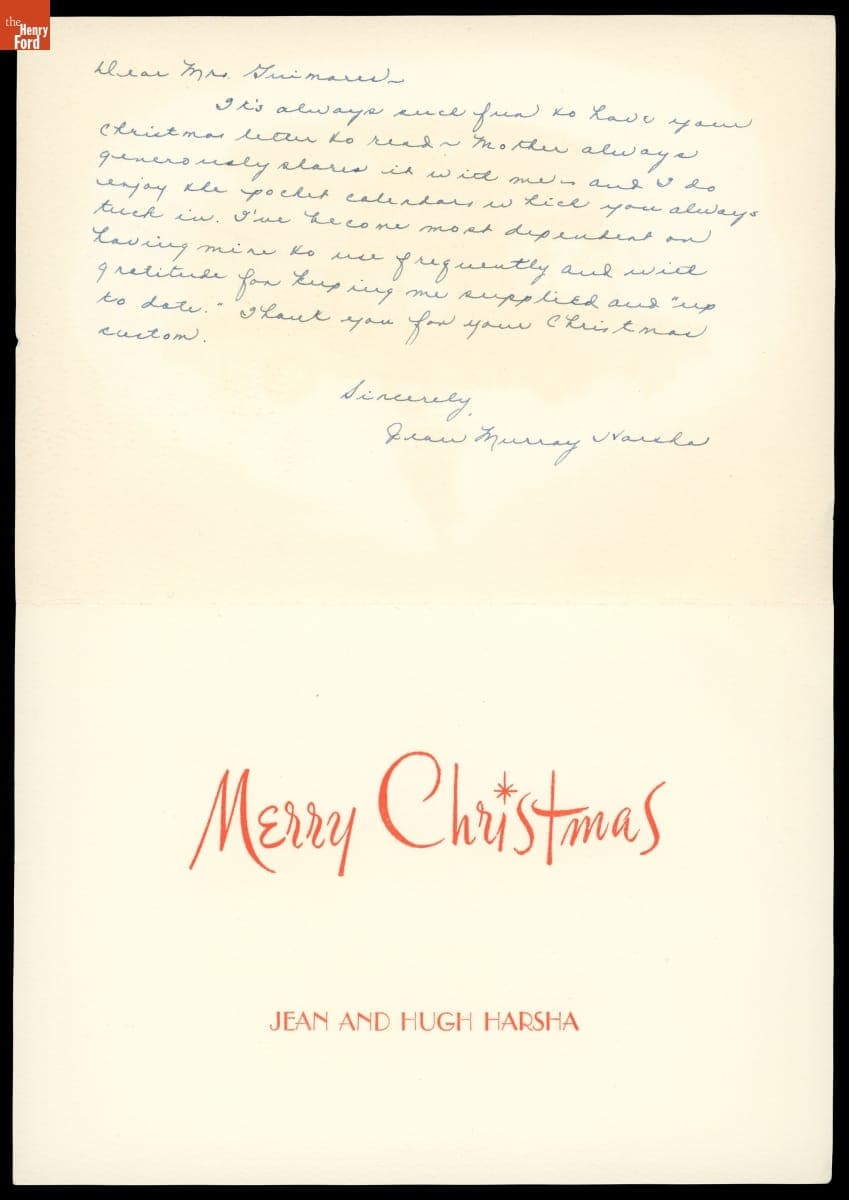 the
Henry
Ford
Dear Mrs. Guimares~
It's always such fun to have your
Christmas letter to read~ Mother always
generously shares it with me - and I do
enjoy the pocket calendars which you always
tuck in. I've become most dependent on
having mine to use frequently and with
gratitude for keeping me supplied and "up
to date." Thank you for your Christmas
custom.
Sincerely,
Jean Murray Harsha
Merry Christmas
JEAN AND HUGH HARSHA